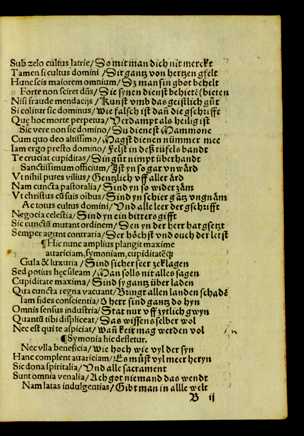 Sub zelo cultus latrie/ So mit man dich nit merckt
Tamen si cultus domini/ Sir gantz von hertzen gfelt
Hunc scis maiorem omnium/ Sz man sin gbot behelt
Forte non seiret dñs/ Sie senen dienst behiet& bieten
Nisi fraude mendacijs/ Kunst vmb das geistlich gůt
Si colitur sic dominus/ wie falsch ist dañ die gschrifft
Que hoc morte perpetua/ Verdampt als heilig ist
Sic vere non sic domino/ Su dienest Mammone
Cum quo deo altissimo/ Magst dienen nümmer mee
Iam ergo presto domino/ Felst in deß tüfels handt
Te cruciat cupiditas/ Sin gůt nimpt überhandt
Sanctissimum officium/ Jst yn so gar vnwård
Vt nihil pures vilius/ Gentzlich vff aller ård
Nam cuncta pastoralia/ Sind yn so wider zäm
Vt christus cũ suis oibus/ Sind yn schier gätz vngnäm
Ac totus cultus domini/ Vnd alle leer der gschrifft
Negocia celestia/ Sind yn ein bitters gifft
Sic cunctũ mutant ordinem/ Sen yn der herr hat gsetzt
Semper agunt contraria/ Der höchst vnd ouch der letst
¶Hic nunc amplius plangit maxime
autariciam, symoniam, cupiditatē &c
Gula & luxuria/ Sind sicher seer zeklagen
Sed potius hęc sileam/ Man sollo nit alles sagen
Cupiditate maxima/ Sind sy gantz über laden
Qua cuncta regna vacuant/ Bringt allen landen schadē
Iam sides conscientia/ O herr sind gantz do hyn
Omnis sensus industria/ Stat nur vff zytlich gwyn
Quantũ tibi displiceat/ Das wissen selber wol
Nec est qui te aspiciat/ wañ keit mag werden vol
¶Symonia hic defletur.
Nec vlla beneficia/ wie hoch wie vyl der syn
Hanc complent auariciam/ Es můst vyl meer heryn
Sic dona spiritalia/ Vnd alle sacrament
Sunt omnia venalia/ Ach got niemand das wendt
Nam latas indulgentias/ Gibt man in allle welt
B ij